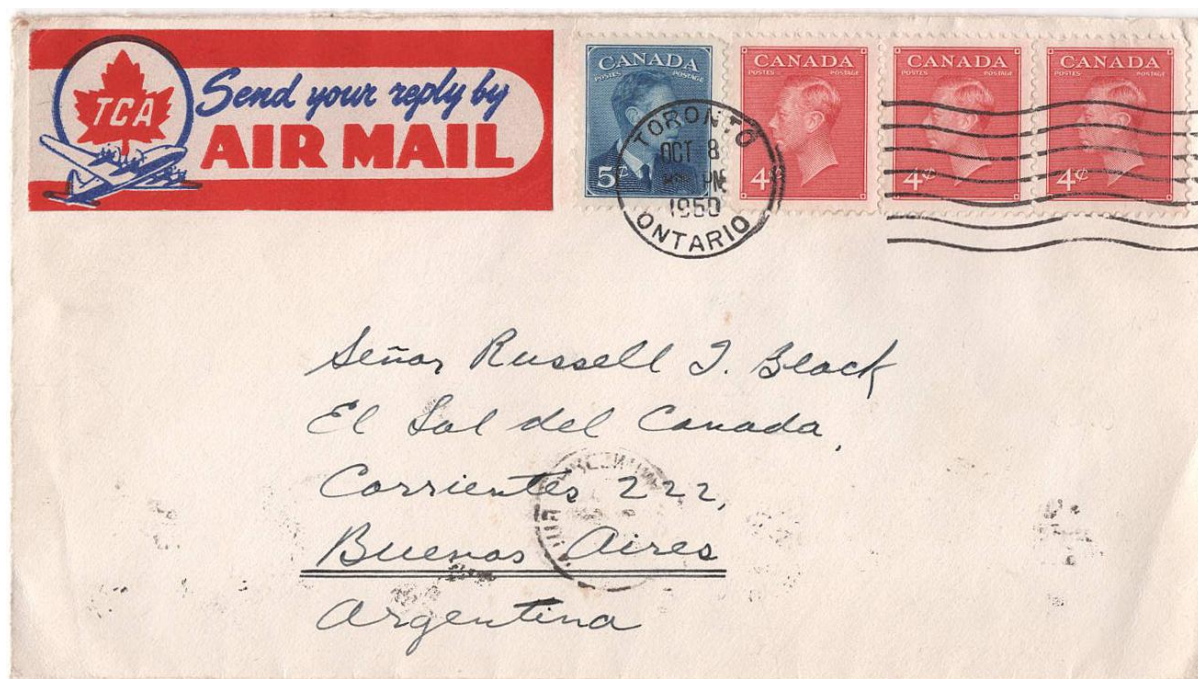 TCA
Send your reply by
AIR MAIL
CANADA
POSTES POSTAGE
5¢
CANADA
POSTES POSTAGE
4¢
CANADA
POSTES POSTAGE
4¢
CANADA
POSTES POSTAGE
4¢
TORONTO
OCT 8
PM
1950
ONTARIO
Señor Russell T. Black
El Sol del Canada,
Corrientes 222,
Buenos Aires
Argentina